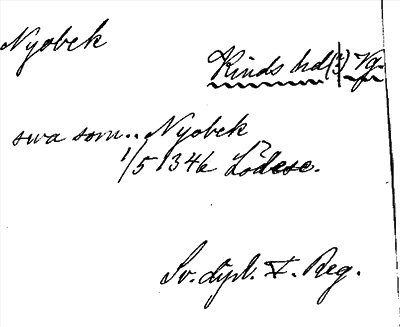 Nyobek
Kinds hd (?) Vg.
swa som.. Nyobek
1/5 1346 Lödese.
Sv. dipl. V. Reg.